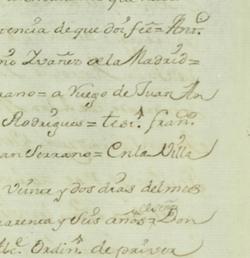 rencia de que doi feè = Antº.
nio Ivañez de la Madrid =
rano = a Ruego de Juan An
Rodrigues = tesº. franº.
an Serrano = En la Villa
Veinte y dos dias del mes
arenta y Seis años Don
Ordinº. de primer